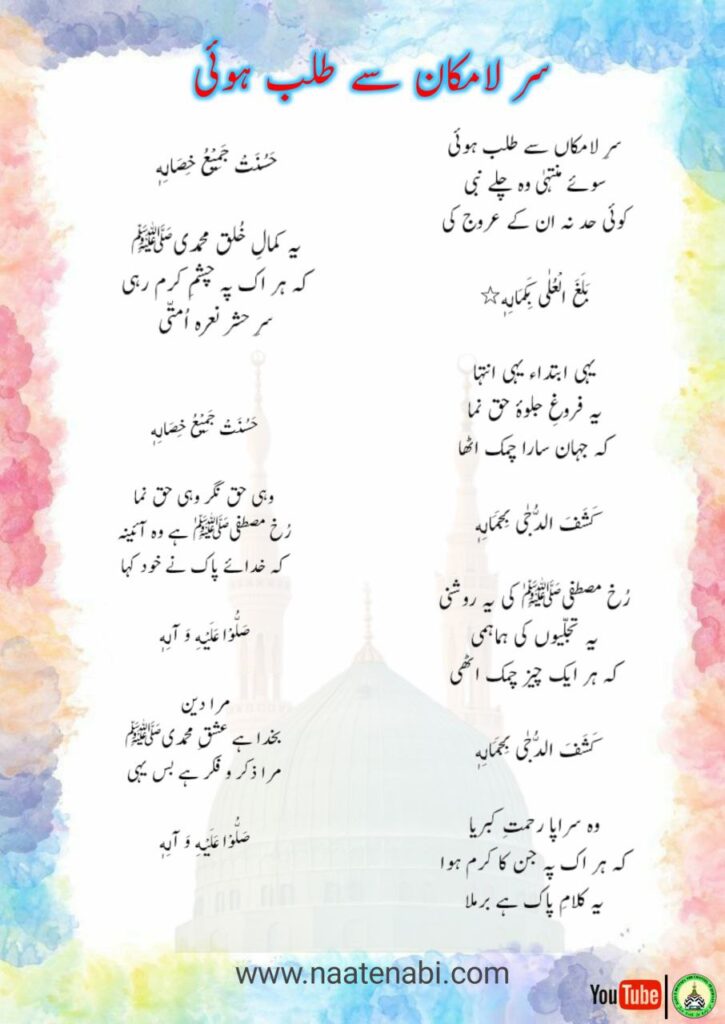 سر لامکان سے طلب ہوئی
سرِ لامکاں سے طلب ہوئی
سوئے منتہیٰ وہ چلے نبی
کوئی حد نہ ان کے عروج کی
بَلَغَ الْعُلٰی بِکَمَالِہٖ☆
یہی ابتداء یہی انتہا
یہ فروغِ جلوۂ حق نما
کہ جہان سارا چمک اٹھا
کَشَفَ الدُّجٰی بِجَمَالِہٖ
رُخ مصطفیﷺ کی یہ روشنی
یہ تجلّیوں کی ہماہمی
کہ ہر ایک چیز چمک اٹھی
کَشَفَ الدُّجٰی بِجَمَالِہٖ
وہ سراپا رحمتِ کبریا
کہ ہر اک پہ جن کا کرم ہوا
یہ کلامِ پاک ہے برملا
حَسُنَتْ جَمِیْعُ خِصَالِہٖ
یہ کمالِ خُلق محمدیﷺ
کہ ہر اک پہ چشمِ کرم رہی
سرِ حشر نعرہ اُمتّی
حَسُنَتْ جَمِیْعُ خِصَالِہٖ
وہی حق نگر وہی حق نما
رُخ مصطفیﷺ ہے وہ آئینہ
کہ خدائے پاک نے خود کہا
صَلُّوْا عَلَیْہِ وَ آلِہٖ
مرا دین
بخدا ہے عشقِ محمدیﷺ
مرا ذکر و فکر ہے بس یہی
صَلُّوْا عَلَیْہِ وَ آلِہٖ
www.naatenabi.com
YouTube